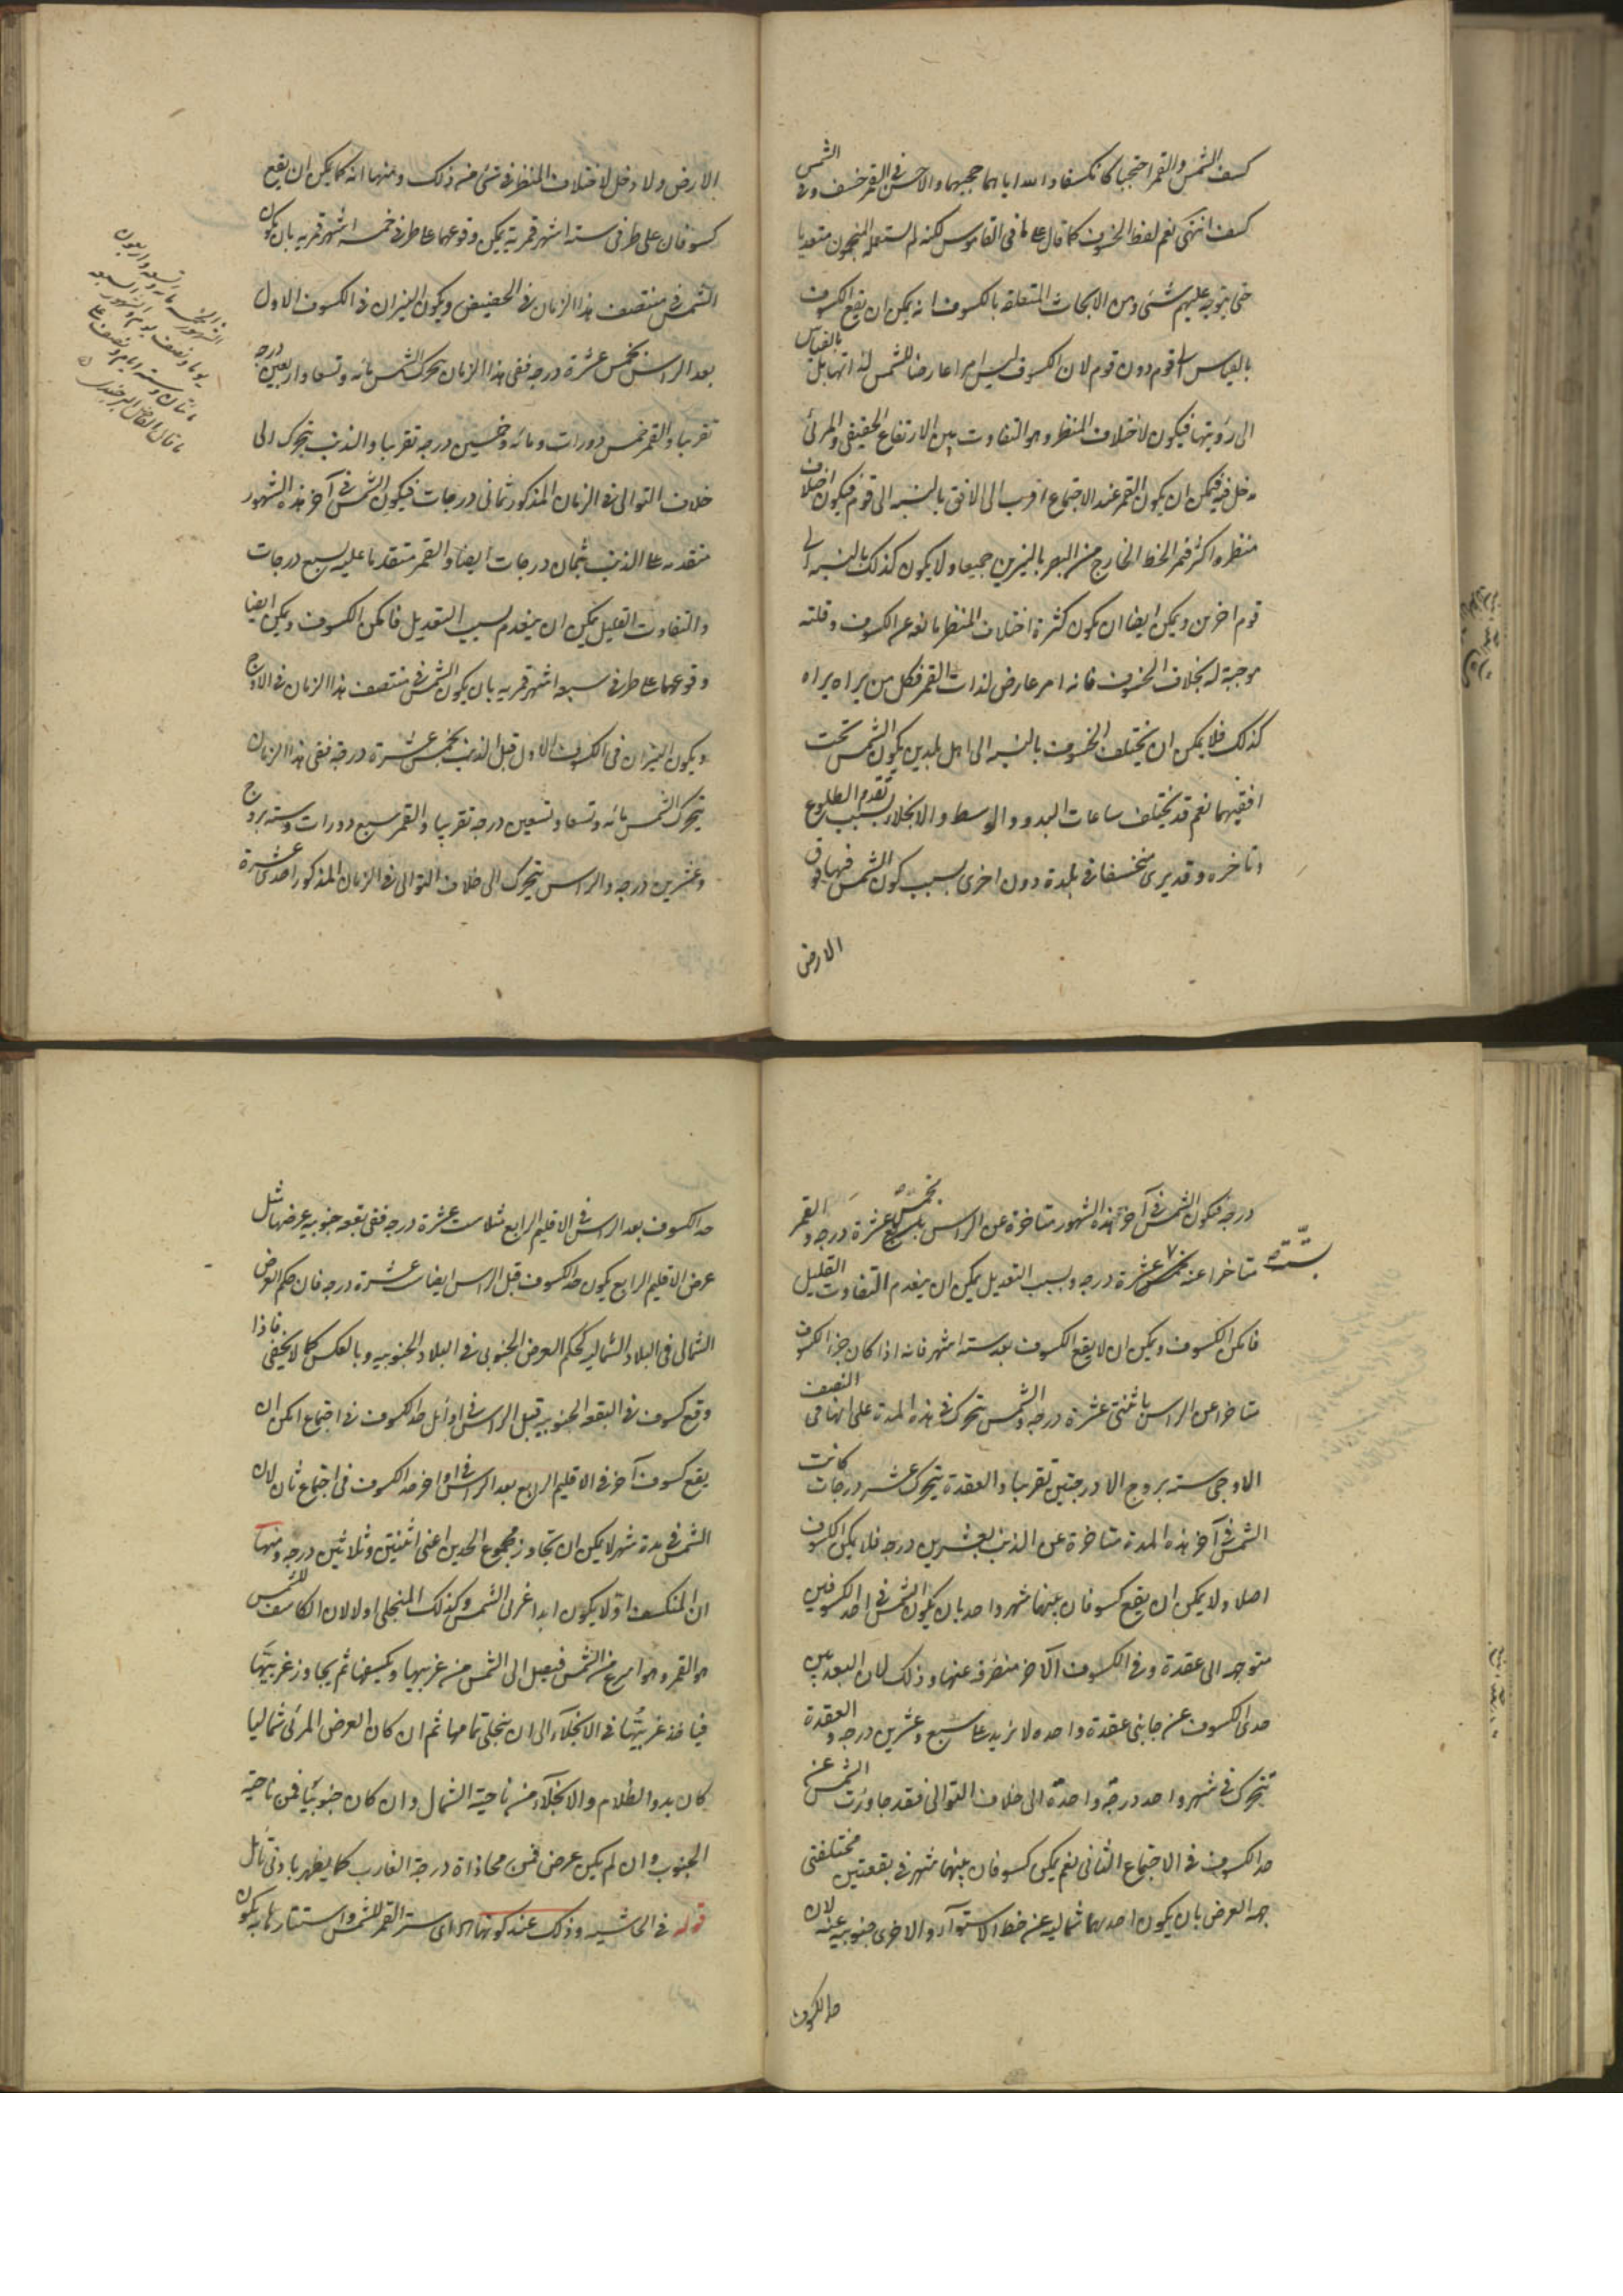 كسف الشمس والقمر احتجبا كانكسفا والله اياهما حجبهما والاحسن في القمر خسف وفي الشمس
كسفت انتهى نعم لفظ الخسوف كما قال في القاموس لكنه لم يستعمله المنجمون متعديا
حتى يتوجه عليهم شئ ومن الابحاث المتعلقة بالكسوف انه يمكن ان يقع الكسوف
بالقياس الى قوم دون قوم لان الكسوف ليس امرا عارضا للشمس لذاتها بل بالقياس
الى رؤيتها فيكون لاختلاف المنظر وهو التفاوت بين الارتفاع الحقيقي والمرئي
مدخل فيه فيمكن ان يكون القمر عند الاجتماع اقرب الى الافق بالنسبة الى قوم فيكون اختلاف
منظره اكثر فيمر الخط الخارج من البصر بالنيرين جميعا ولا يكون كذلك بالنسبة الى
قوم اخرين ويمكن ايضا ان يكون كثرة اختلاف المنظر مانعة عن الكسوف وقلته
موجبة له بخلاف الخسوف فانه امر عارض لذات القمر فكل من يراه يراه
كذلك فلا يمكن ان يختلف الخسوف بالنسبة الى اهل بلدين يكون الشمس تحت
افقيهما نعم قد يختلف ساعات البدو والوسط والانجلاء بسبب تقدم الطلوع
وتاخره وقد يرى منخسفا في بلدة دون اخرى بسبب كون الشمس فيها فوق
الارض
الارض ولا دخل لاختلاف المنظر في شئ من ذلك ومنها انه كما يمكن ان يقع
كسوفان على طرفي ستة اشهر قمرية يمكن وقوعهما على طرفي خمسة اشهر قمرية بان يكون
الشمس في منتصف هذا الزمان في الحضيض ويكون النيران في الكسوف الاول
بعد الراس بخمس عشرة درجة ففي هذا الزمان تحرك الشمس مائة وتسعا واربعين درجة
تقريبا والقمر خمس دورات ومائة وخمسين درجة تقريبا والذنب يتحرك الى
خلاف التوالي في الزمان المذكور ثماني درجات فيكون الشمس في آخر هذه الشهور
متقدمة على الذنب بثمان درجات ايضا والقمر متقدما عليه بسبع درجات
والتفاوت القليل يمكن ان ينعدم بسبب التعديل فامكن الكسوف ويمكن ايضا
وقوعهما على طرفي سبعة اشهر قمرية بان يكون الشمس في منتصف هذا الزمان في الاوج
ويكون النيران في الكسوف الاول قبل الذنب بخمس عشرة درجة ففي هذا الزمان
يتحرك الشمس مائة وتسعا وتسعين درجة تقريبا والقمر سبع دورات وستة بروج
وعشرين درجة والراس يتحرك الى خلاف التوالي في الزمان المذكور احدى عشرة
مائة وسبعة واربعون
يوما ونصف يوم
مائتان وستة ايام ونصف على
ما قال الفاضل البرجندي
درجة فيكون الشمس في آخر هذه الشهور متاخرة عن الراس بخمس عشرة درجة والقمر
متاخرا عنه عشرة درجة وبسبب التعديل يمكن ان ينعدم التفاوت القليل
بستة
فامكن الكسوف ويمكن ان لا يقع الكسوف بعد ستة اشهر فانه اذا كان جزء الكسوف
متاخرا عن الراس باثنتي عشرة درجة والشمس يتحرك في هذه المدة على انها في النصف
الاوجي ستة بروج الا درجتين تقريبا والعقدة يتحرك عشر درجات كانت
الشمس في آخر هذه المدة متاخرة عن الذنب بعشرين درجة فلا يمكن الكسوف
اصلا ولا يمكن ان يقع كسوفان بينهما شهر واحد بان يكون الشمس في احد الكسوفين
متوجهة الى عقدة وفي الكسوف الآخر منصرفة عنها وذلك لان البعد بين
حدي الكسوف عن جانبي عقدة واحدة لا يزيد على سبع وعشرين درجة والعقدة
يتحرك في شهر واحد درجة واحدة الى خلاف التوالي فقد جاوزت الشمس عن
حد الكسوف في الاجتماع الثاني نعم يمكن كسوفان بينهما شهر في بقعتين مختلفتي
جهة العرض بان يكون احديهما شمالية عن خط الاستوآء والاخرى جنوبية عنه لان
حد الكسوف
حد الكسوف بعد الراس في الاقليم الرابع ثلاث عشرة درجة ففي بقعة جنوبية عرضها مثل
عرض الاقليم الرابع يكون حد الكسوف قبل الراس ايضا عشرة درجة فان حكم العرض
الشمالي في البلاد الشمالية كحكم العرض الجنوبي في البلاد الجنوبية وبالعكس كما لا يخفى فاذا
وقع كسوف في البقعة الجنوبية قبل الراس في اوائل حد الكسوف في اجتماع امكن ان
يقع كسوف آخر في الاقليم الرابع بعد الراس في اواخر حد الكسوف في اجتماع ثان لان
الشمس في مدة شهر لا يمكن ان تجاوز مجموع الحدين اعني اثنتين وثلاثين درجة ومنها
ان المنكسف اولا يكون ابدا غربي الشمس وكذلك المنجلي اولا لان الكاسف للشمس
هو القمر وهو اسرع من الشمس فيصل الى الشمس من غربيها ويكسفها ثم يجاوز غربيتها
فياخذ غربيتها في الانجلآء الى ان ينجلي تمامها ثم ان كان العرض المرئي شماليا
كان بدو الظلام والانجلآء من ناحية الشمال وان كان جنوبيا فمن ناحية
الجنوب وان لم يكن عرض فمن محاذاة درجة الغارب كما يظهر بادنى تامل
قوله في الحاشية وذلك عند كونها اي ستر القمر للشمس واستتارها به يكون